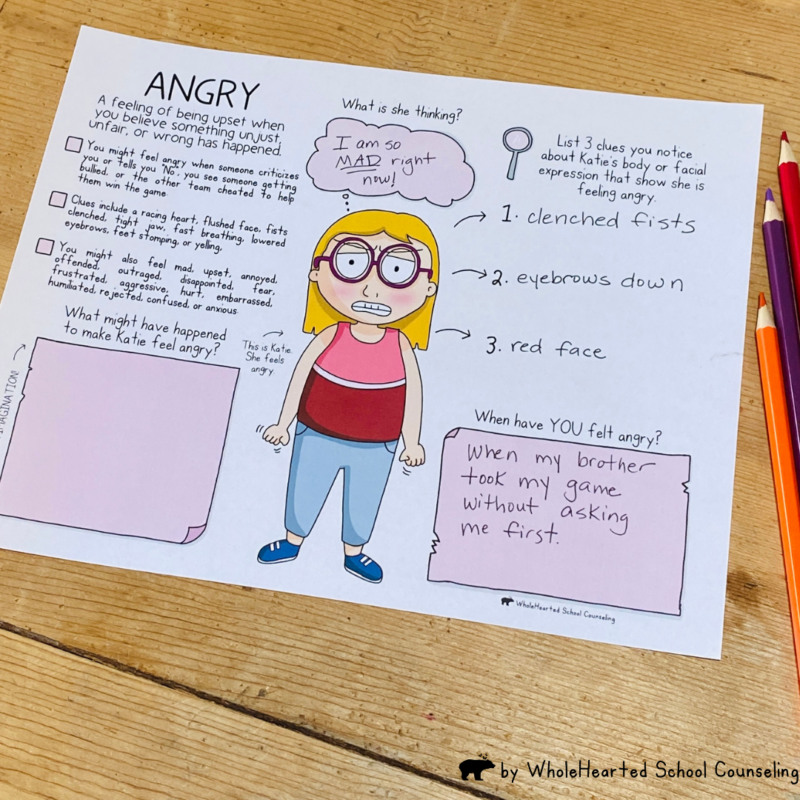 ANGRY
A feeling of being upset when
you believe something unjust,
unfair, or wrong has happened.
You might feel angry when someone criticizes
you or tells you "No", you see someone getting
bullied, or the other team cheated to help
them win the game.
Clues include a racing heart, flushed face, fists
clenched, tight jaw, fast breathing, lowered
eyebrows, feet stomping, or yelling.
You might also feel mad, upset, annoyed,
offended, outraged, disappointed, fear,
frustrated, aggressive, hurt, embarrassed,
humiliated, rejected, confused, or anxious.
What might have happened
to make Katie feel angry?
IMAGINATION!
What is she thinking?
I am so
MAD right
now!
This is Katie.
She feels
angry.
List 3 clues you notice
about Katie's body or facial
expression that show she is
feeling angry.
1. clenched fists
2. eyebrows down
3. red face
When have YOU felt angry?
When my brother
took my game
without asking
me first.
WholeHearted School Counseling
by WholeHearted School Counseling